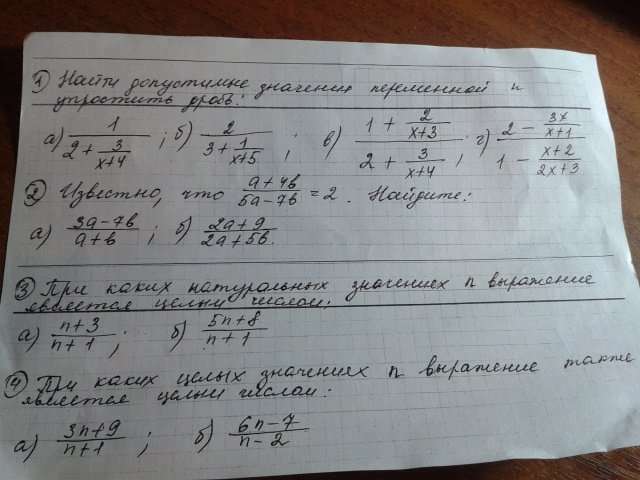 ① Найти допустимые значения переменной и
упростить дробь:
а) 1/(2 + 3/(x+4)) ; б) 2/(3 + 1/(x+5)) ; в) (1 + 2/(x+3))/(2 + 3/(x+4)) ; г) (2 − 3x/(x+1))/(1 − (x+2)/(2x+3))
② Известно, что (a+4b)/(5a−7b) = 2 . Найдите:
а) (3a−7b)/(a+b) ; б) (2a+9)/(2a+5b).
③ При каких натуральных значениях n выражение
является целым числом:
а) (n+3)/(n+1) ; б) (5n+8)/(n+1)
④ При каких целых значениях n выражение также
является целым числом:
а) (3n+9)/(n+1) ; б) (6n−7)/(n−2)